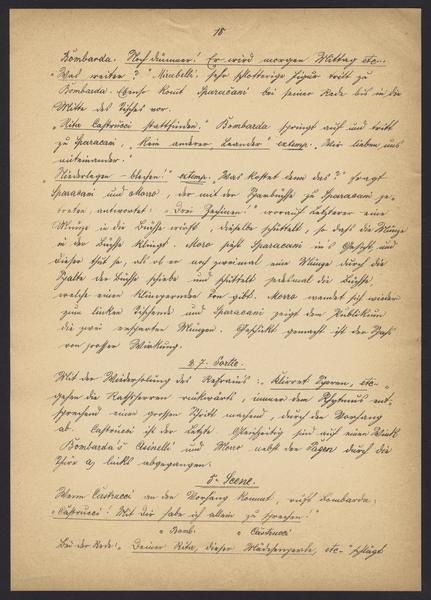 18
Bombarda. Noch dümmer! Er wird morgen Mittag etc...
"Was weiter?" Mirabelli: sehr schlotterige Figur tritt zu
Bombarda. Ebenso komt Sparacani bei seiner Rede bis in die
Mitte des Tisches vor.
"Rita Castrucci stattfinden." Bombarda springt auf und tritt
zu Sparacani, "Kein anderer Leander" extemp. "Wir lieben uns
miteinander."
"Niederlegen - blechen!" extemp. "Was kostet denn das?" fragt
Sparacani und Moro, der mit der Sparbüchse zu Sparacani ge-
treten, antwortet: "Drei Zechinen!" worauf Letzterer eine
Münze in die Büchse wirft, dieselbe schüttelt, so daß die Münze
in der Büchse klingt. Moro sieht Sparacani in's Gesicht, und
dieser thut so, als ob er noch zweimal eine Münze durch die
Spalte der Büchse schiebe und schüttelt jedesmal die Büchse,
welche einen klingenden Ton gibt. Moro wendet sich wieder
zum linken Tischende und Sparacani zeigt dem Publikum
die zwei ersparten Münzen. Geschickt gemacht ist der Spaß
von grosser Wirkung.
27. Sortie.
Mit der Wiederholung des Refrains: etc."
gehen die Rathsherren rückwärts, immer dem Rhytmus ent-
sprechend einen grossen Schritt machend, durch den Vorhang
ab. Castrucci ist der Letzte. Gleichzeitig sind auf einen Wink
Bombarda's Asinelli und Moro nebst den Pagen durch die
Thür a) links abgegangen.
5te Scene.
Wenn Castrucci an den Vorhang kommt, ruft Bombarda:
"Castrucci! Mit Dir habe ich allein zu sprechen!"
Bomb. Castrucci
Bei der Rede: "Deiner Rita, dieser Mädchenperle, etc." schlägt